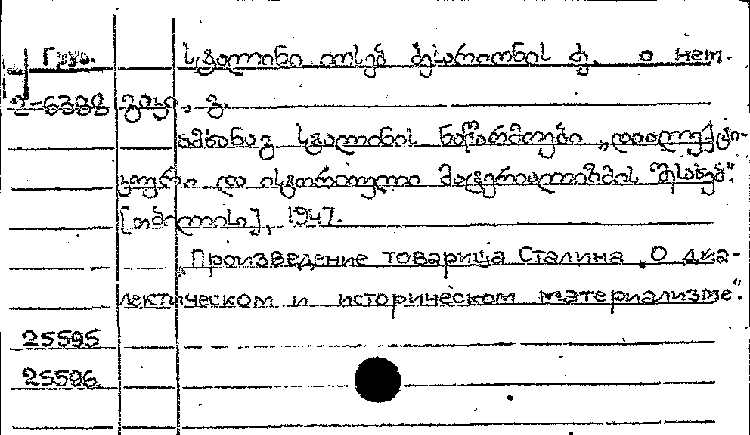 Груз. სტალინი იოსებ ბესარიონის ძე. о нем.
2-6388 გაგი, გ.
ამხანაგ სტალინის ნაწარმოები „დიალექტი-
კური და ისტორიული მატერიალიზმის შესახებ“.
[თბილისი], 1947.
Произведение товарища Сталина „О диа-
лектическом и историческом материализме“.
25595
25596